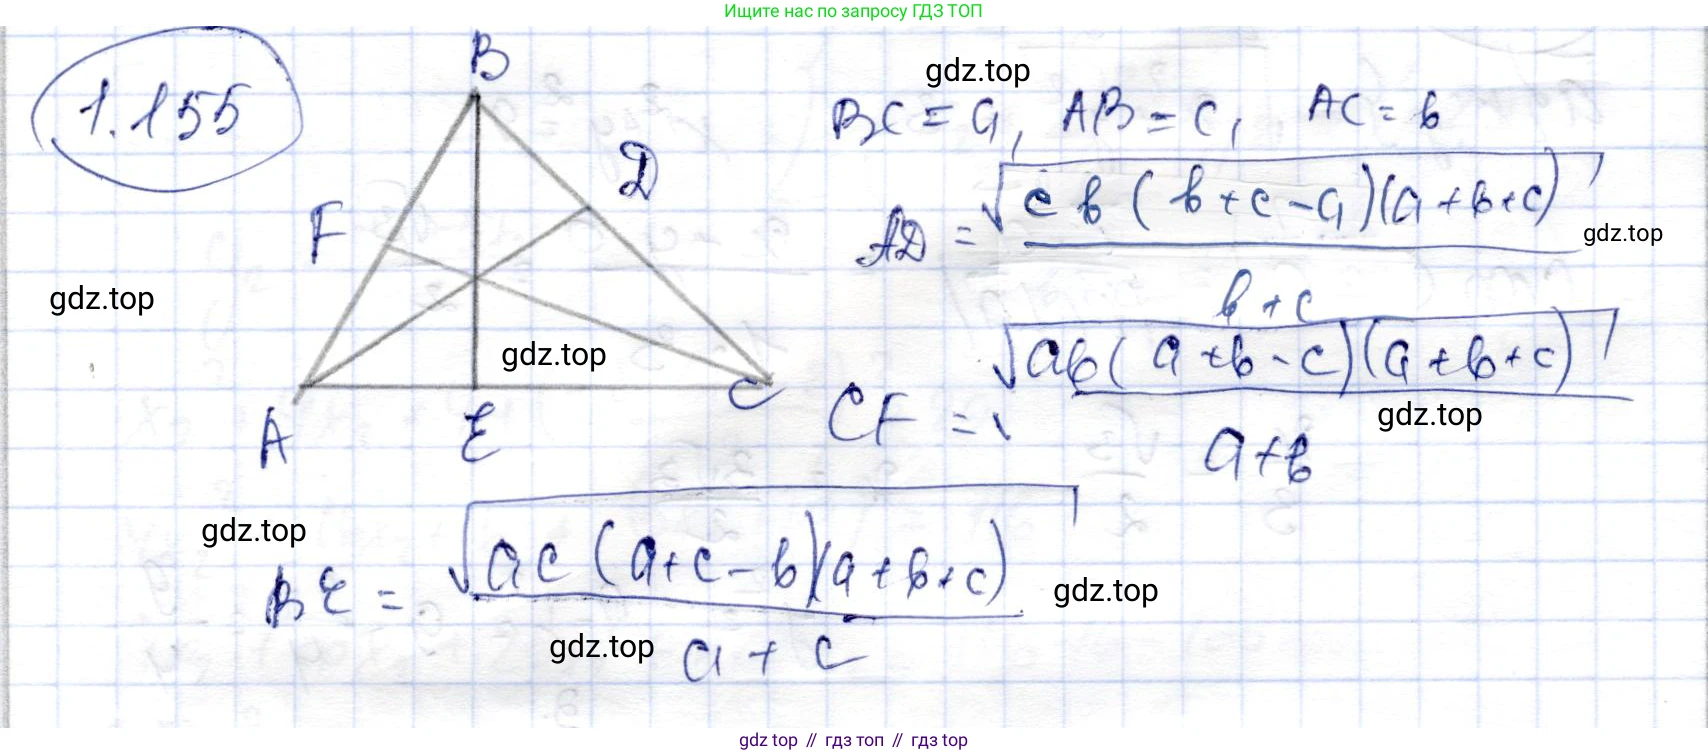 Ищите нас по запросу ГДЗ ТОП
1.155
B
gdz.top
BC = a, AB = c, AC = b
D
F
AD = √cb(b+c-a)(a+b+c)
gdz.top
b+c
gdz.top
gdz.top
CF = √ab(a+b-c)(a+b+c)
gdz.top
a+b
A
E
C
gdz.top
BE = √ac(a+c-b)(a+b+c)
gdz.top
gdz.top
a+c
gdz top // гдз топ // гдз top